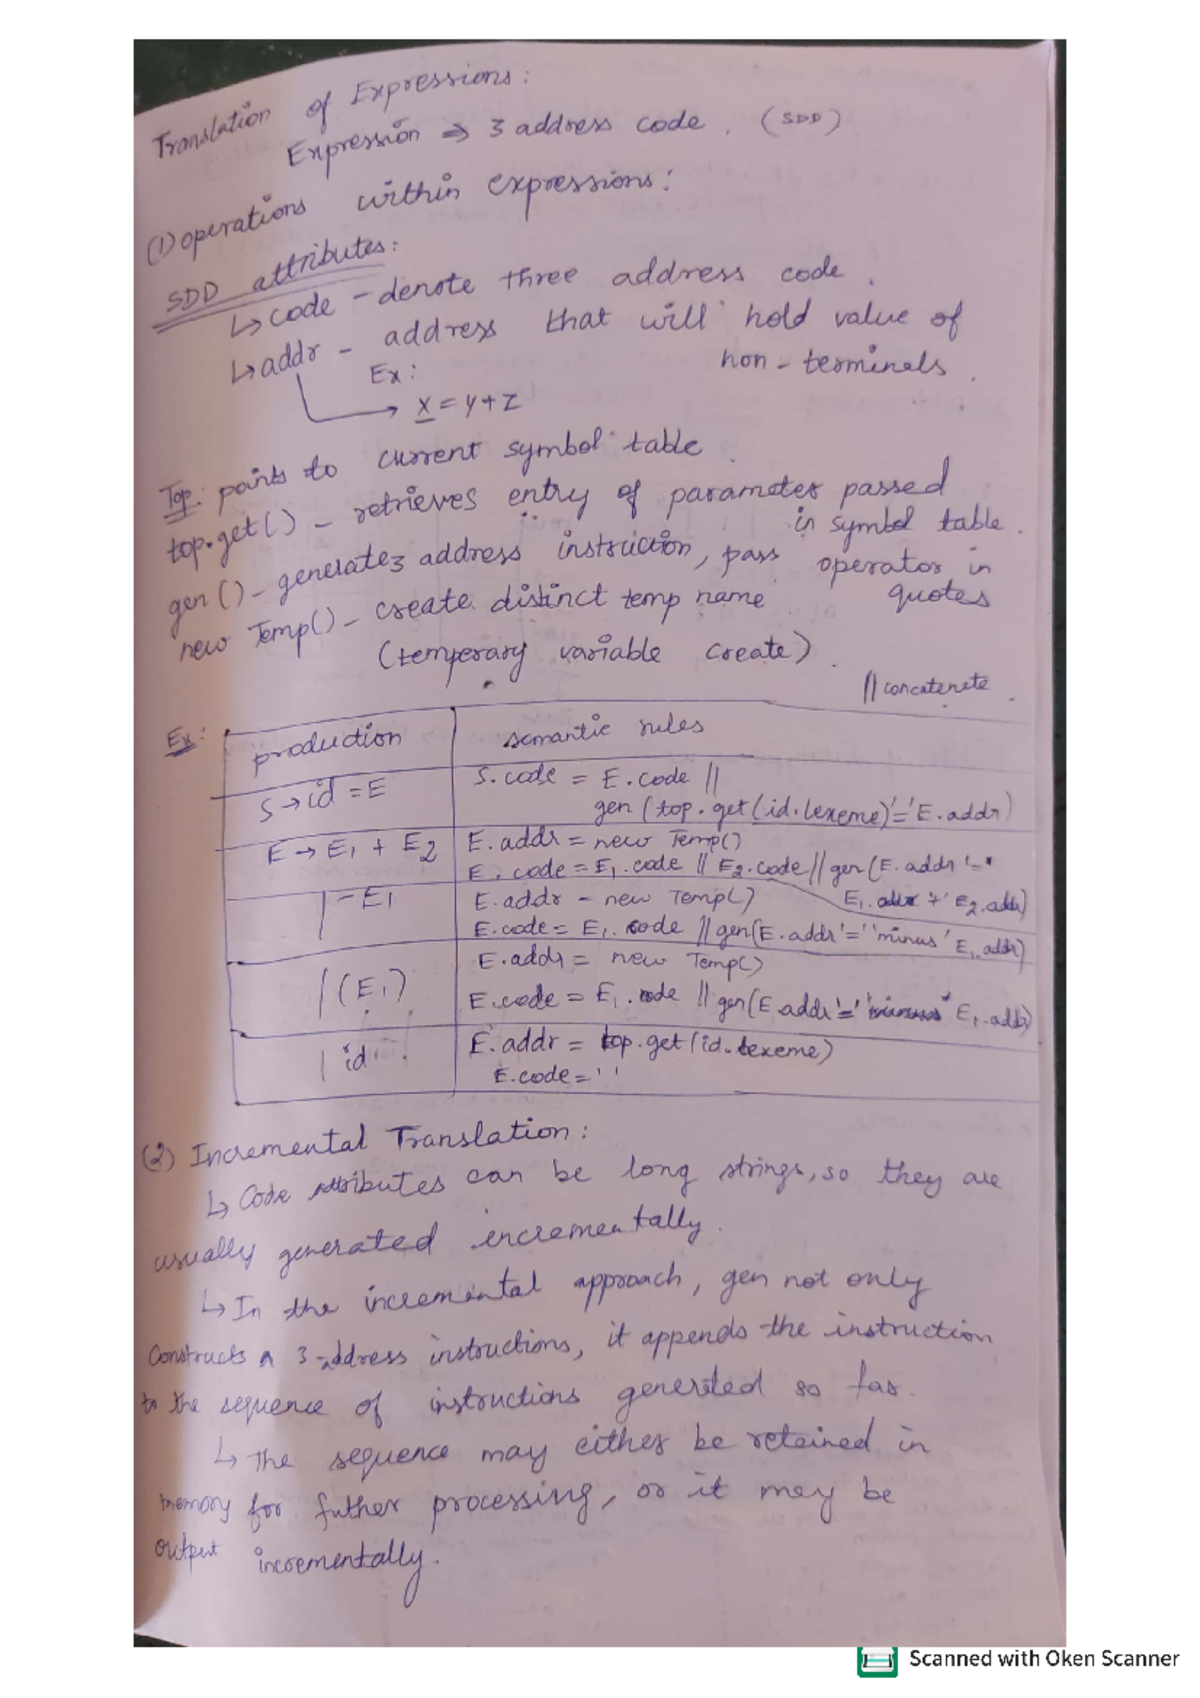 Translation of Expressions:
Expression ⇒ 3 address code. (SDD)
(1) operations within expressions:
SDD attributes:
↳ code - denote three address code.
↳ addr - address that will hold value of
non-terminals.
Ex:
x = y+z
Top: points to current symbol table.
top.get() - retrieves entry of parameter passed
in symbol table.
gen() - generate 3 address instruction, pass operator in
quotes
new Temp() - create distinct temp name
(temperary variable create).
|| concatenete.
Ex:
production | semantic rules
S → id = E | S.code = E.code ||
gen (top.get(id.lexeme)'='E.addr)
E → E1 + E2 | E.addr = new Temp()
E.code = E1.code || E2.code || gen(E.addr '='
E1.addr '+' E2.addr)
| - E1 | E.addr = new Temp()
E.code = E1.code || gen(E.addr'=''minus' E1.addr)
| (E1) | E.addr = new Temp()
E.code = E1.code || gen(E.addr'=' 'minus' E1.addr)
| id | E.addr = top.get(id.lexeme)
E.code=' '
(2) Incremental Translation:
↳ Code attributes can be long strings, so they are
usually generated incrementally.
↳ In the incremental approach, gen not only
constructs a 3-address instructions, it appends the instruction
to the sequence of instructions generated so far.
↳ The sequence may either be retained in
memory for futher processing, or it may be
output incrementally.
Scanned with Oken Scanner